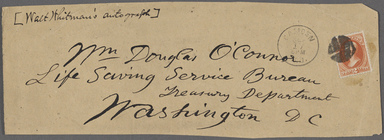 [Walt Whitman's autograph]
CAMDEN
Wm Douglas O'Connor
Life Saving Service Bureau
Treasury Department
Washington D C